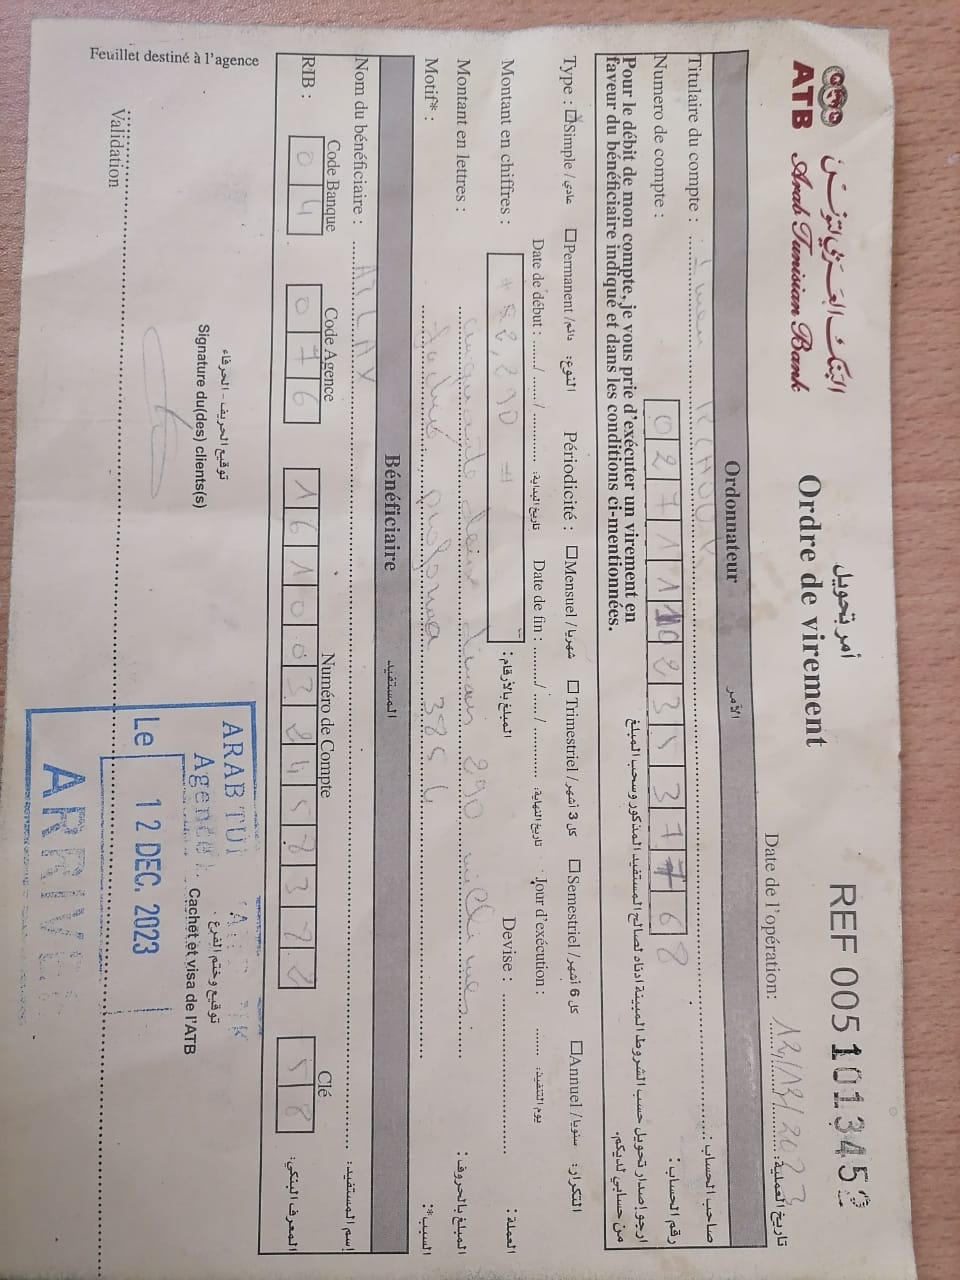 البنك العربي لتونس
ATB Arab Tunisian Bank
أمر بتحويل
Ordre de virement
REF 005101345
Date de l'opération: 12/12/2023 تاريخ العملية:
Ordonnateur الآمر
Titulaire du compte : Imen صاحب الحساب:
Numero de compte : رقم الحساب:
Pour le débit de mon compte, je vous prie d'exécuter un virement en
faveur du bénéficiaire indiqué et dans les conditions ci-mentionnées.
ارجو إصدار تحويل حسب الشروط المبينة ادناه لصالح المستفيد المذكور وسحب المبلغ
من حسابي لديكم.
Type : Simple / عادي Permanent / دائم النوع: Périodicité : Mensuel / شهريا Trimestriel / كل 3 أشهر Semestriel / كل 6 أشهر Annuel / سنويا التكرار:
Date de début : تاريخ البداية: Date de fin : تاريخ النهاية: Jour d'exécution : يوم التنفيذ:
Montant en chiffres : 52,290 المبلغ بالأرقام: Devise : العملة:
Montant en lettres : cinquante deux dinars 290 millimes المبلغ بالحروف:
Motif* : السبب*:
Bénéficiaire المستفيد
Nom du bénéficiaire : إسم المستفيد:
Code Banque Code Agence Numéro de Compte Clé
RIB : 04 076 58 المعرف البنكي:
توقيع الحريف - الحرفاء
Signature du(des) clients(s)
توقيع وختم الفرع
Cachet et visa de l'ATB
ARAB TU
Agence
Le 12 DEC. 2023
ARRIVE
Validation
Feuillet destiné à l'agence